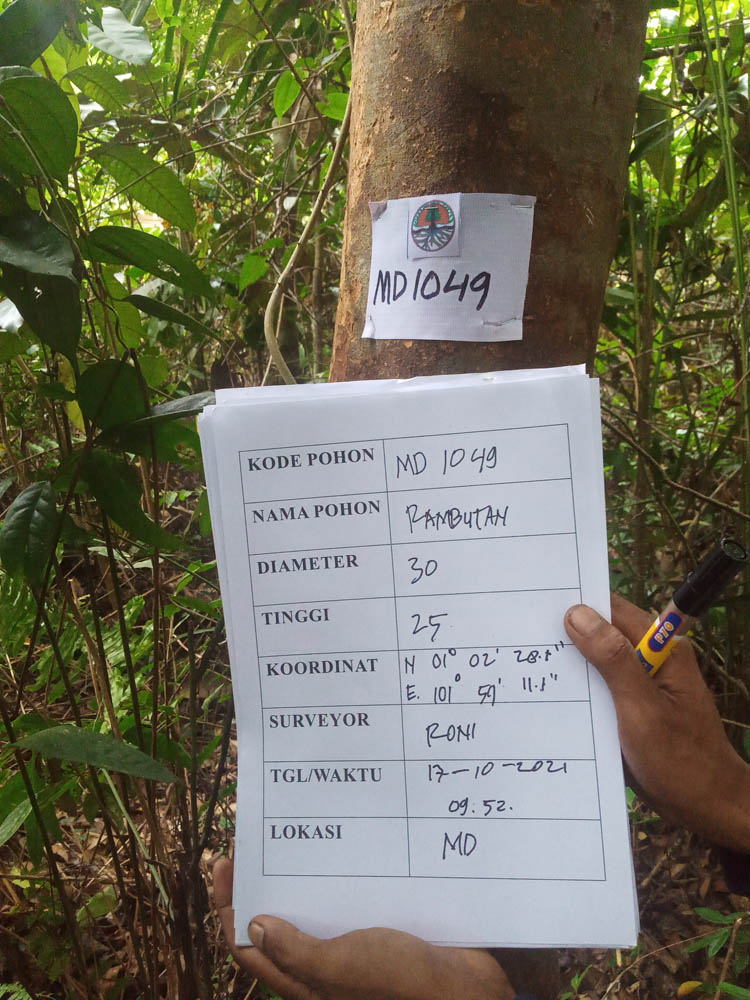 MD 1049
KODE POHON MD 1049
NAMA POHON RAMBUTAN
DIAMETER 30
TINGGI 25
KOORDINAT N 01° 02' 28.1"
E. 101° 59' 11.1"
SURVEYOR RONI
TGL/WAKTU 17-10-2021
09.52.
LOKASI MD
PRO